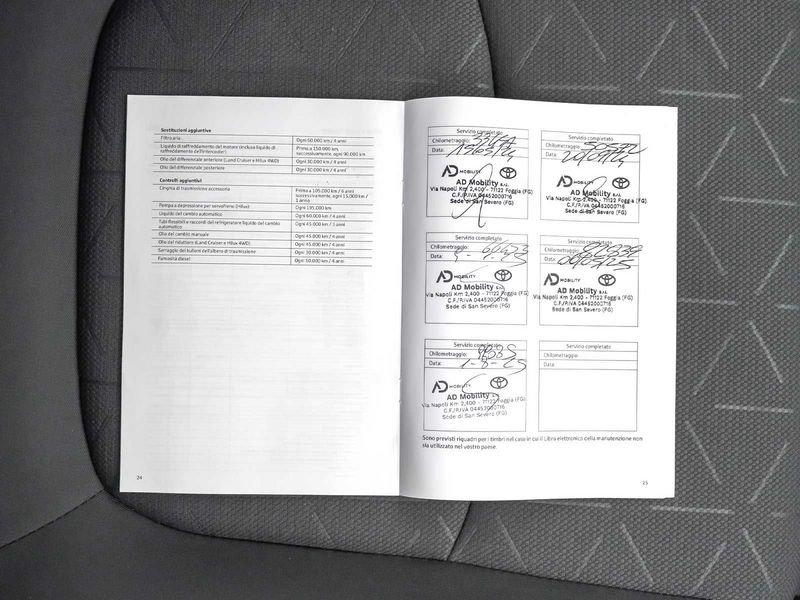 Sostituzioni aggiuntive
Filtro aria Ogni 60.000 km / 4 anni
Liquido di raffreddamento del motore (incluso liquido di raffreddamento dell'intercooler) Prima a 150.000 km, successivamente, ogni 90.000 km
Olio del differenziale anteriore (Land Cruiser e Hilux 4WD) Ogni 30.000 km / 4 anni
Olio del differenziale posteriore Ogni 30.000 km / 4 anni
Controlli aggiuntivi
Cinghia di trasmissione accessoria Prima a 105.000 km / 6 anni successivamente, ogni 15.000 km / 1 anno
Pompa a depressione per servofreno (Hilux) Ogni 195.000 km
Liquido del cambio automatico Ogni 60.000 km / 4 anni
Tubi flessibili e raccordi del refrigeratore liquido del cambio automatico Ogni 45.000 km / 3 anni
Olio del cambio manuale Ogni 45.000 km / 4 anni
Olio del riduttore (Land Cruiser e Hilux 4WD) Ogni 45.000 km / 4 anni
Serraggio dei bulloni dell'albero di trasmissione Ogni 30.000 km / 4 anni
Fumosità diesel Ogni 30.000 km / 4 anni
24
Servizio completato
Chilometraggio:
Data:
AD MOBILITY
AD Mobility s.r.l.
Via Napoli Km 2,400 - 71122 Foggia (FG)
C.F./P.IVA 04452000716
Sede di San Severo (FG)
Servizio completato
Chilometraggio:
Data:
AD MOBILITY
AD Mobility s.r.l.
Via Napoli Km 2,400 - 71122 Foggia (FG)
C.F./P.IVA 04452000716
Sede di San Severo (FG)
Servizio completato
Chilometraggio:
Data:
AD MOBILITY
AD Mobility s.r.l.
Via Napoli Km 2,400 - 71122 Foggia (FG)
C.F./P.IVA 04452000716
Sede di San Severo (FG)
Servizio completato
Chilometraggio:
Data:
AD MOBILITY
AD Mobility s.r.l.
Via Napoli Km 2,400 - 71122 Foggia (FG)
C.F./P.IVA 04452000716
Sede di San Severo (FG)
Servizio completato
Chilometraggio:
Data:
AD MOBILITY
AD Mobility s.r.l.
Via Napoli Km 2,400 - 71122 Foggia (FG)
C.F./P.IVA 04452000716
Sede di San Severo (FG)
Servizio completato
Chilometraggio:
Data:
Sono previsti riquadri per i timbri nel caso in cui il Libro elettronico della manutenzione non
sia utilizzato nel vostro paese.
25